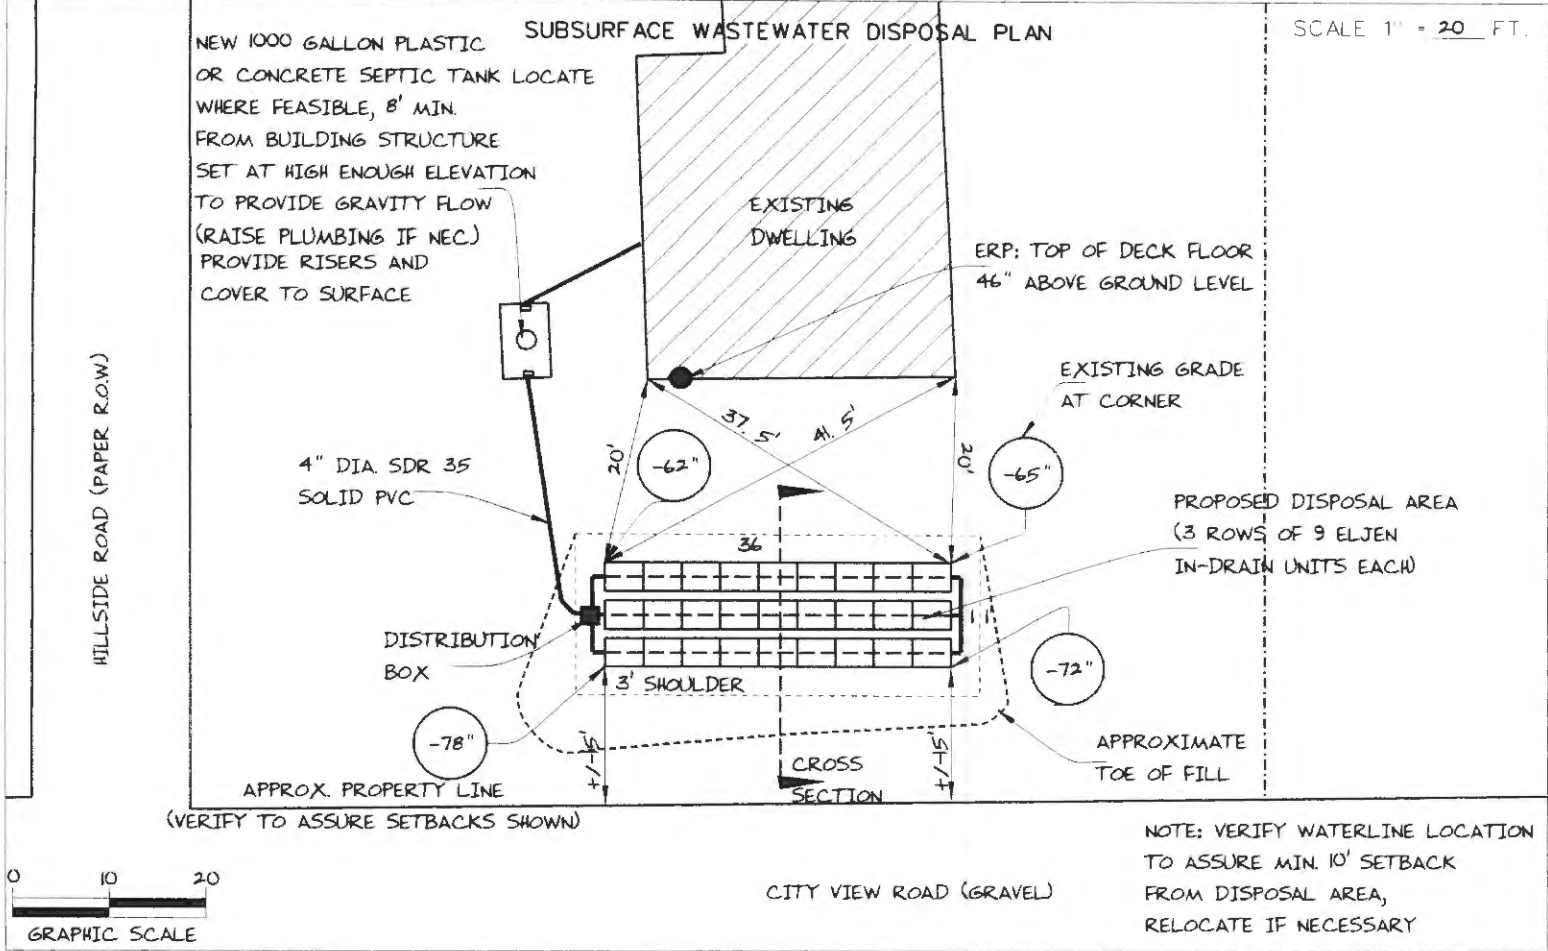 SUBSURFACE WASTEWATER DISPOSAL PLAN
SCALE 1" = 20 FT.
NEW 1000 GALLON PLASTIC
OR CONCRETE SEPTIC TANK LOCATE
WHERE FEASIBLE, 8' MIN.
FROM BUILDING STRUCTURE
SET AT HIGH ENOUGH ELEVATION
TO PROVIDE GRAVITY FLOW
(RAISE PLUMBING IF NEC.)
PROVIDE RISERS AND
COVER TO SURFACE
EXISTING
DWELLING
ERP: TOP OF DECK FLOOR
46" ABOVE GROUND LEVEL
EXISTING GRADE
AT CORNER
HILLSIDE ROAD (PAPER R.O.W)
37.5'
41.5'
20'
20'
-62"
-65"
4" DIA. SDR 35
SOLID PVC
PROPOSED DISPOSAL AREA
(3 ROWS OF 9 ELJEN
IN-DRAIN UNITS EACH)
36
DISTRIBUTION
BOX
3' SHOULDER
-72"
-78"
+/-15'
+/-15'
CROSS
SECTION
APPROXIMATE
TOE OF FILL
APPROX. PROPERTY LINE
(VERIFY TO ASSURE SETBACKS SHOWN)
NOTE: VERIFY WATERLINE LOCATION
TO ASSURE MIN. 10' SETBACK
FROM DISPOSAL AREA,
RELOCATE IF NECESSARY
CITY VIEW ROAD (GRAVEL)
0 10 20
GRAPHIC SCALE